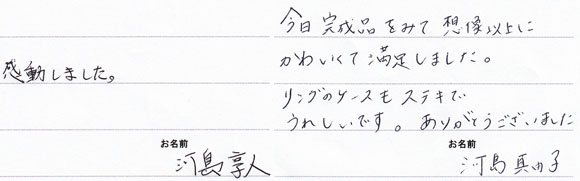 感動しました。
お名前
河島享人
今日完成品をみて想像以上に
かわいくて満足しました。
リングのケースもステキで
うれしいです。ありがとうございました
お名前
河島真由子